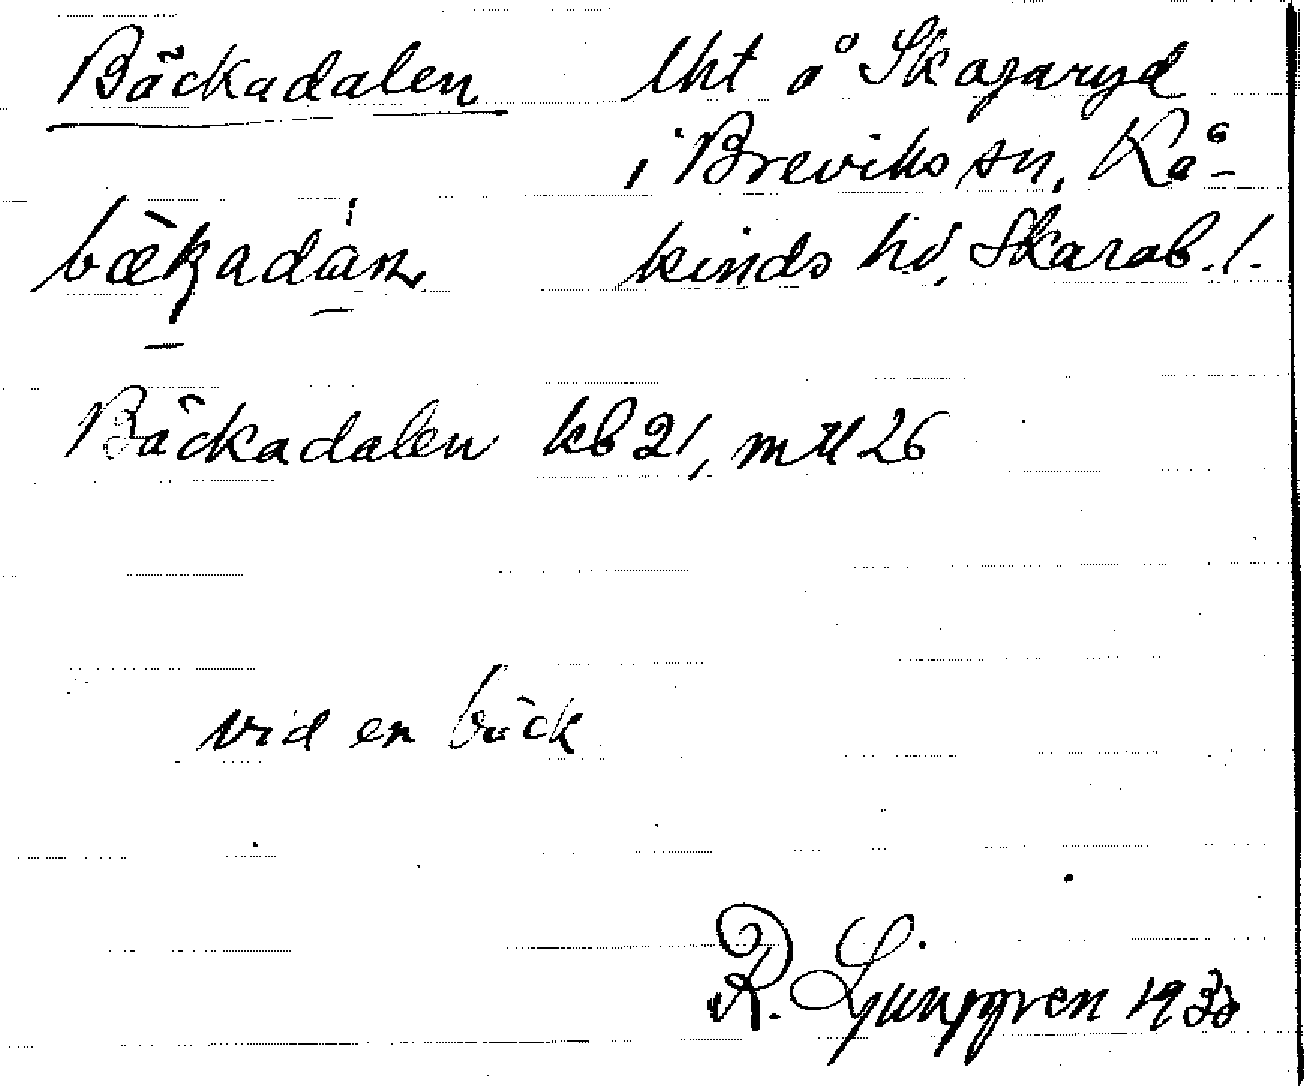 Bäckadalen lht å Skogaryd
i Breviks sn, Kå-
kinds hd, Skarab. l.
Bäckadalen kb 21, mtl 26
vid en bäck
R. Ljunggren 1933